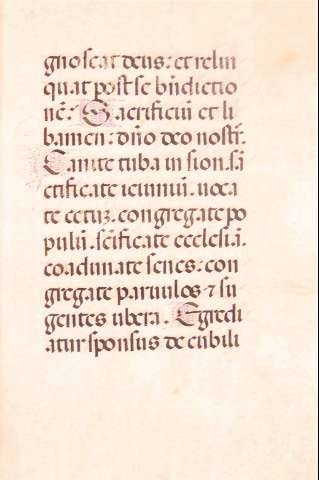 gnoscat deus: et relin
quat post se bn̄dictio
nē: Sacrificiū et li
bamen: dn̄o deo nostr̄.
Canite tuba in sion. sā
ctificate ieiuniū. uoca
te cetuʒ. congregate po
pulū. sc̄ificate ecclesiā.
coadunate senes: con
gregate paruulos ⁊ su
gentes ubera. Egredi
atur sponsus de cubili